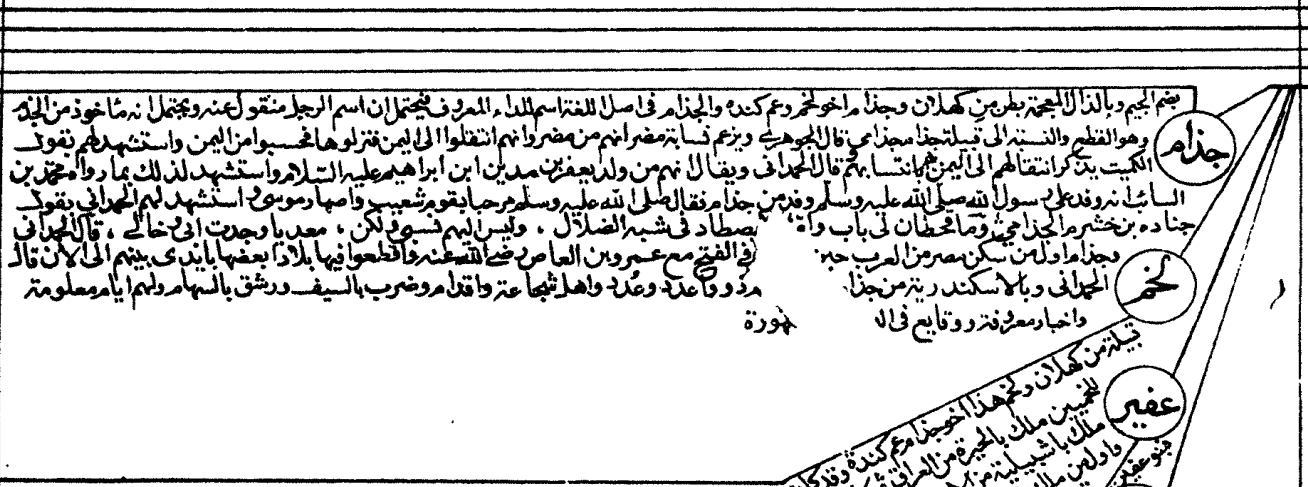 بضم الجيم وبالذال المعجمة بطن من كهلان وجذام اخو لخم وعم كنده والجذام في اصل اللغة اسم للداء المعروف فيحتمل ان اسم الرجل منقول عنه ويحتمل انه مأخوذ من الجذم
وهو القطع والنسبة الى قبيلة جذام جذامي قال الجوهري ويزعم نسابة مضر انهم من مضر وانهم انتقلوا الى اليمن فنزلوها فحسبوا من اليمن واستشهد لهم بقول
جذام
الكميت يذكر انتقالهم الى اليمن قال الحمداني ويقال انهم من ولد يعفر بن مدين ابن ابراهيم عليه السلام واستشهد لذلك بما رواه محمد بن
السائب انه وفد على رسول الله صلى الله عليه وسلم وفد من جذام فقال صلى الله عليه وسلم مرحبا بقوم شعيب واصهار موسى واستشهد لهم الحمداني بقول
جناده بن خشرم الجذامي وما قحطان لي باب وام تصطاد في شبه الضلال ، وليس اليهم نسبي ولكن ، معديا وجدت ابي وخالي ، قال الحمداني
وجذام اول من سكن مصر من العرب في الفتح مع عمرو بن العاص رضي الله عنه واقطعوا فيها بلادا بعضها بايدي بنيهم الى الان قال
لخم
الحمداني وبالاسكندرية من جذام ذو وعدد وعُدد واهل شجاعة واقدام وضرب بالسيف ورشق بالسهام ولهم ايام معلومة
واخبار معروفة ووقايع في
قبيلة من كهلان ولخم هذا اخو جذام وعم كندة وقد كان
عفير
للخميين ملك بالحيرة من العراق
ملك باشبيلية من
واول من ملك
بنو عفير